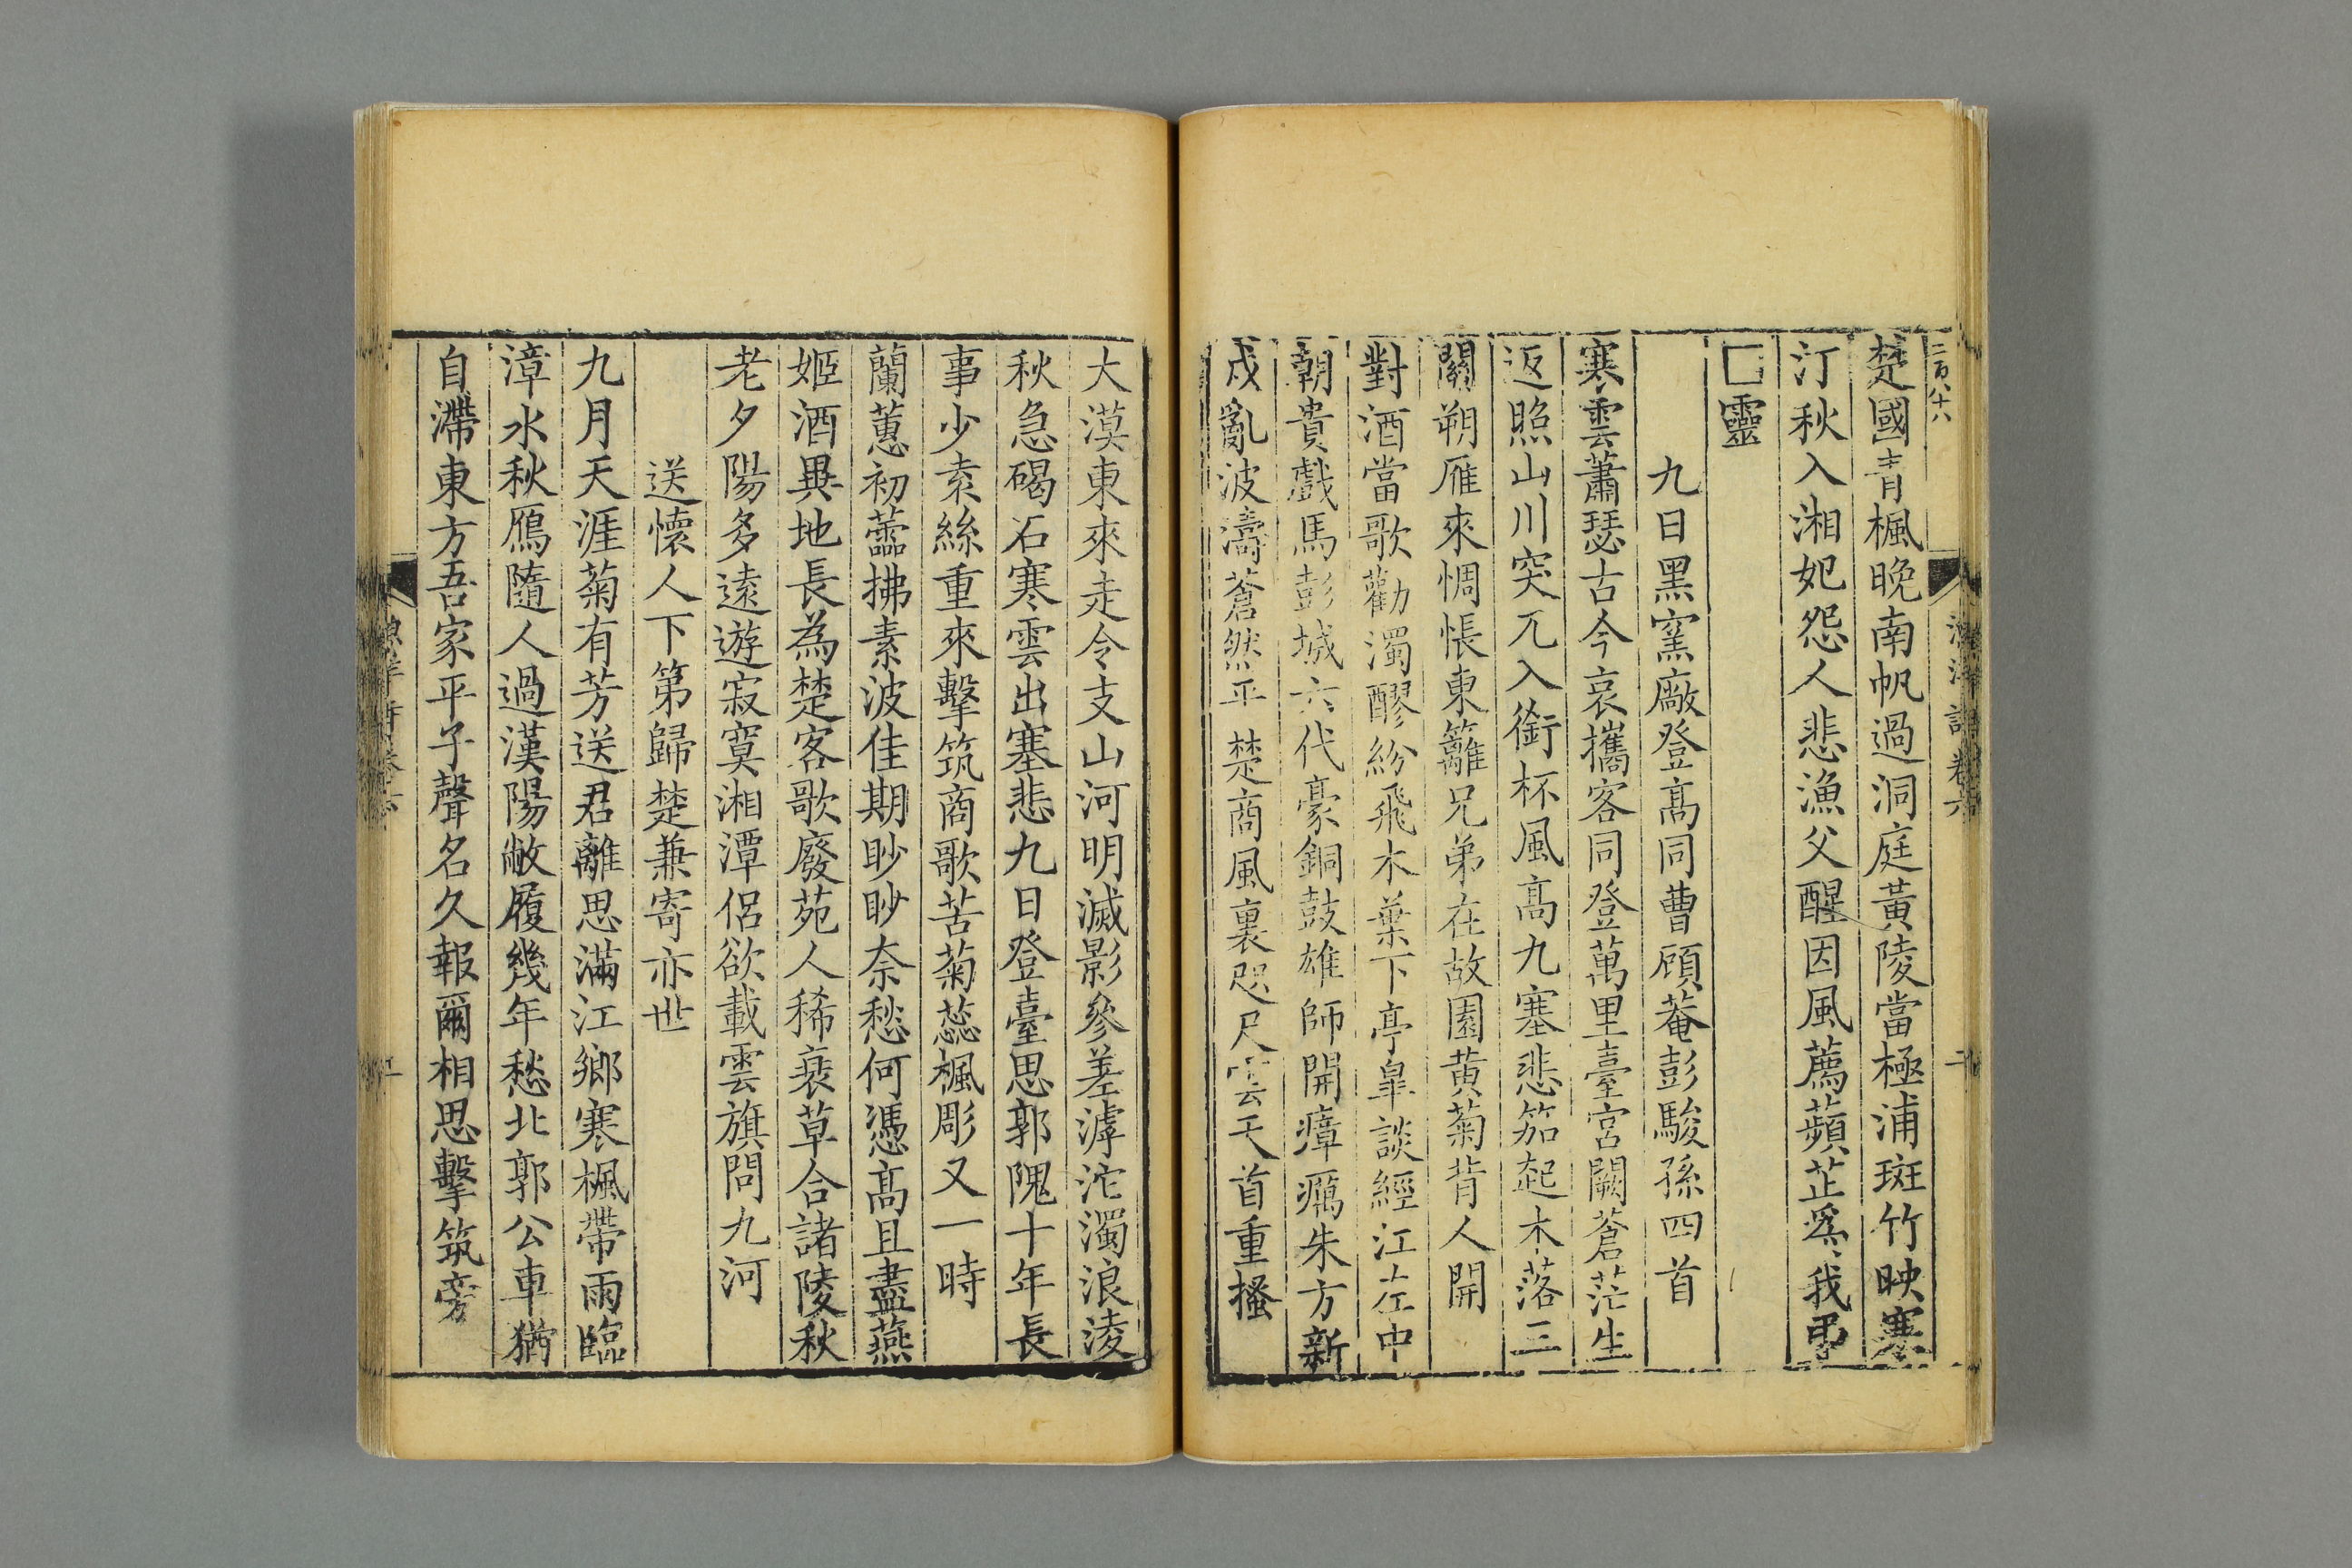 二百八十八
楚國青楓晚南帆過洞庭黃陵當極浦斑竹映寒
汀秋入湘妃怨人悲漁父醒因風薦蘋芷爲我弔
□靈
九日黑窯廠登髙同曹頋菴彭駿孫四首
寒雲蕭瑟古今哀攜客同登萬里臺宮闕蒼茫生
返照山川突兀入銜杯風髙九塞悲笳起木落三
關朔雁來惆悵東籬兄弟在故園黃菊背人開
對酒當歌勸濁醪紛飛木葉下亭臯談經江左中
朝貴戲馬彭城六代豪銅鼓雄師開瘴癘朱方新
戍亂波濤蒼然平楚商風裏咫尺雲天首重搔
大漠東來走令支山河明滅影參差滹沱濁浪淩
秋急碣石寒雲出塞悲九日登臺思郭隗十年長
事少索絲重來擊筑商歌苦菊蕊楓彫又一時
蘭蕙初蘦拂素波佳期眇眇奈愁何憑髙且盡燕
姬酒異地長為楚客歌廢苑人稀衰草合諸陵秋
老夕陽多遠遊寂寞湘潭侶欲載雲旗問九河
送懷人下第歸楚兼寄亦世
九月天涯菊有芳送君離思滿江鄉寒楓帶雨臨
漳水秋鴈隨人過漢陽敝履幾年愁北郭公車猶
自滯東方吾家平子聲名久報爾相思擊筑旁